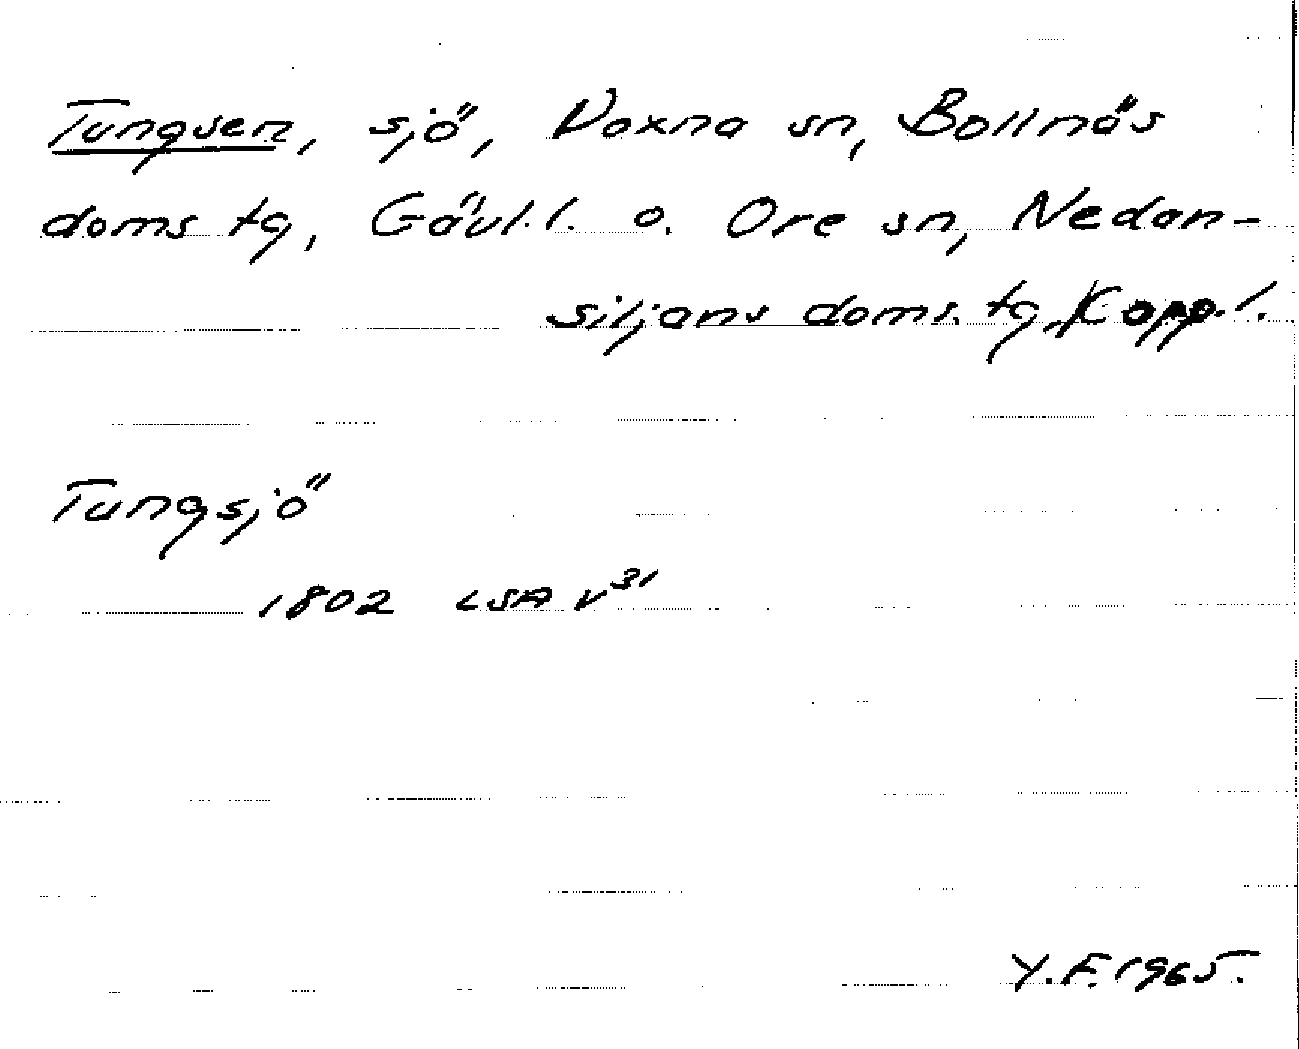 Tungsen, sjö, Voxna sn, Bollnäs
doms tg, Gävl.l. o. Ore sn, Nedan-
siljans doms. tg, Kopp.l.
Tungsjö
1802 LSA V31
Y.F. 1965.